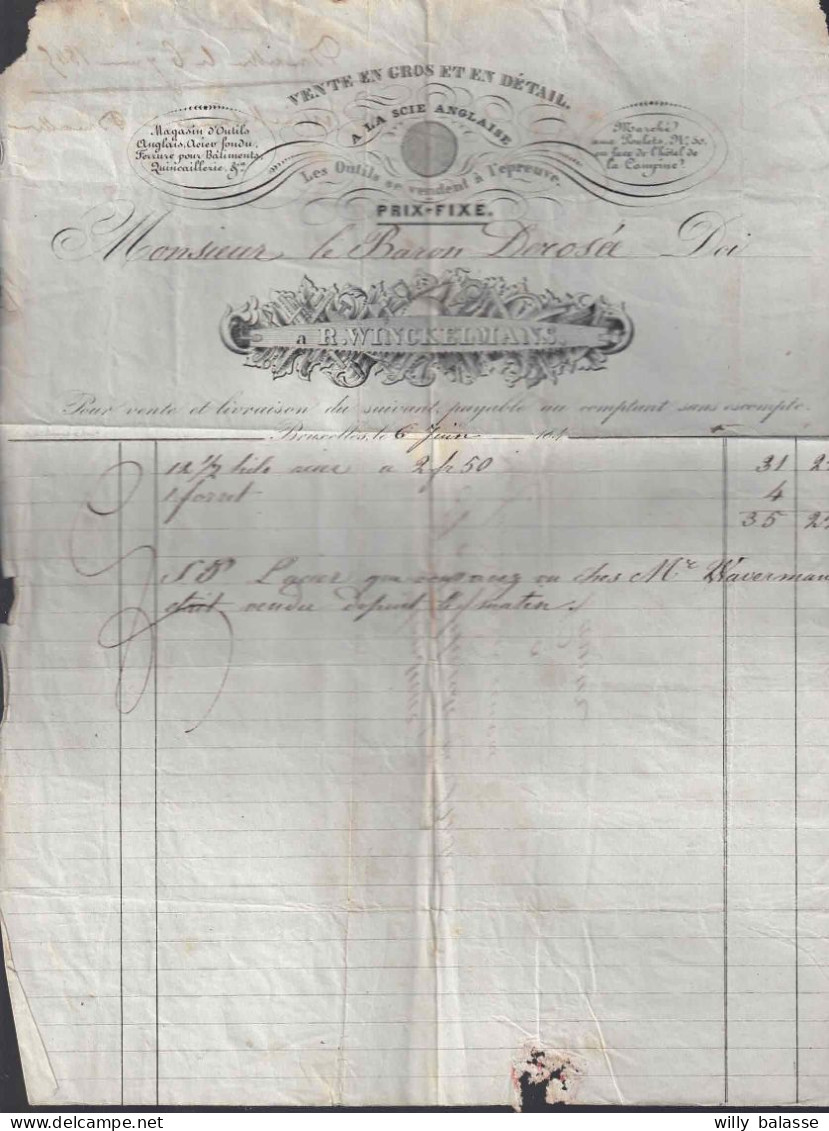 VENTE EN GROS ET EN DÉTAIL.
A LA SCIE ANGLAISE
Magasin d'Outils
Anglais, Acier fondu,
Ferrure pour Bâtiments,
Quincaillerie, &a
Marché
aux Poulets, No. 30.
en face de l'hôtel de
la Campine.
Les Outils se vendent à l'épreuve.
PRIX-FIXE.
Monsieur le Baron Derosée Doi
a R. WINCKELMANS.
Pour vente et livraison du suivant, payable au comptant sans escompte.
Bruxelles, le 6 Juin 184
12 1/2 kilo acier a 2 fr 50 31 2
1 forret 4
35 2
L'acier que vous avez vu chez Mr Waverman
était vendu depuis le matin.
willy balasse